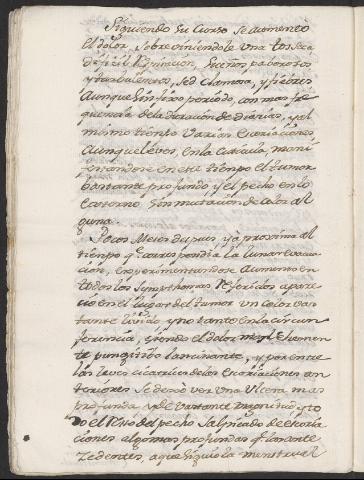 Siguiendo su curso se aumentò
el dolor, sobreviniendole una tos seca
dificil respiracion, sueños paborosos
y turbulentos, sed clamosa, y fiebres
aunque sin fixo periodo, con mas fre
quencia de la duracion de diarias, y al
mismo tiempo varias excoriaciones,
aunque leves, en la
en este tiempo el tumor
bastante profundo, y el pecho en lo
externo sin mutacion de color al
guna.
Pocos meses despues, ya proxima al
tiempo q.e correspondia la lunar evacua
cion, experimentandose aumento en
todos los symptomas referidos apare
cio en el lugar del tumor un color bas
tante livido, y no tanto en la circun
ferencia, siendo el dolor
te pungitivo lancinante, y por entre
las leves cicatrices de las excoriaciones an
teriores se dexò ver una ulcera mas
profunda, y de bastante y to
do el resto del pecho salpicado de excoria
ciones algo mas profundas q.e las ante
zedentes, a que siguio la menstrual